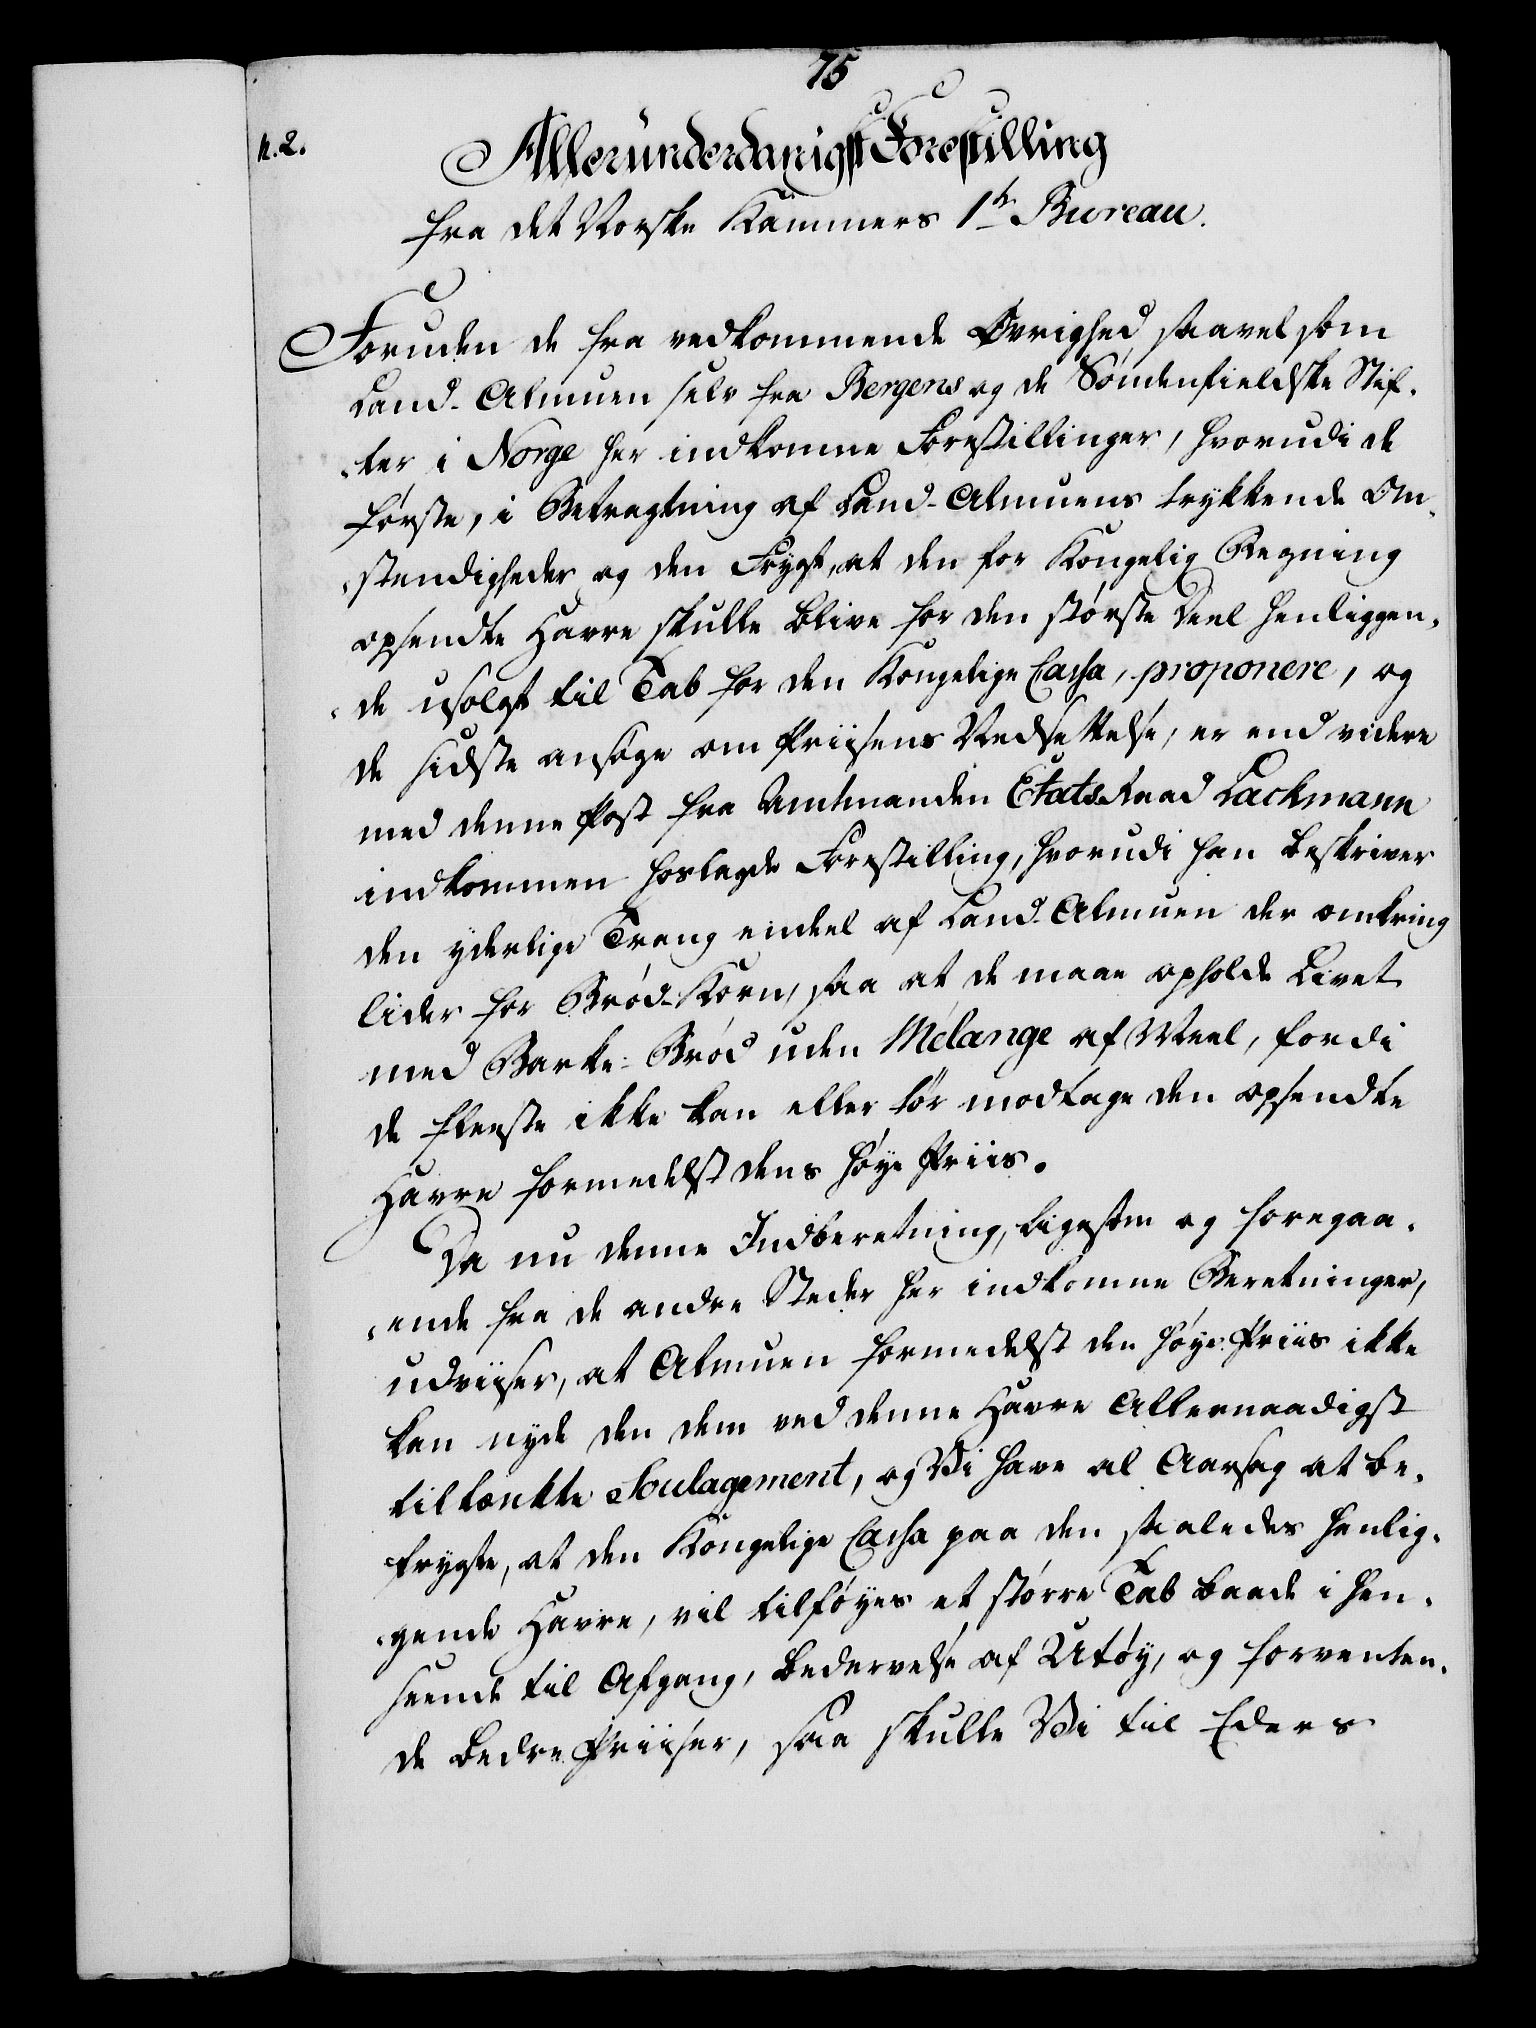 75
n. 2.
Allerunderdanigst Forestilling
fra det Norske Kammers 1te Bureau.
Foruden de fra vedkommende Øvrighed saavel som
Land-Almuen selv fra Bergens og de Søndenfieldske Stif-
ter i Norge her indkomne Forestillinger, hvorudi de
første, i Betragtning af Land-Almuens trykkende Om-
stendigheder og den Frygt, at den for Kongelig Regning
opsendte Havre skulle blive for den største Deel henliggen-
de usolgt til Tab for den Kongelige Cassa, proponere, og
de sidste ansøge om Priisens Nedsettelse, er end videre
med denne Post fra Amtmanden Etats Raad Lachmann
indkommen hoslagde Forestilling, hvorudi han beskriver
den yderlige Trang eendeel af Land-Almuen der omkring
lider for Brød-Korn, saa at de maae opholde Livet
med Barke-Brød uden Mélange af Meel, fordi
de fleeste ikke kan eller tør modtage den opsendte
Havre formedelst dens høye Priis.
Da nu denne Indberetning, ligesom og foregaa-
ende fra de andre Steder her indkomne Beretninger,
udviiser, at Almuen formedelst den høye Priis ikke
kan nyde den dem ved denne Havre Allernaadigst
tiltænkte Soulagement, og Vi have al Aarsag at be-
frygte, at den Kongelige Cassa paa den saaledes henlig-
gende Havre, vil tilføyes et større Tab baade i hen-
seende til Afgang, bedervelse af Utøy, og forventen-
de bedre Priiser, saa skulle Vi til Eders